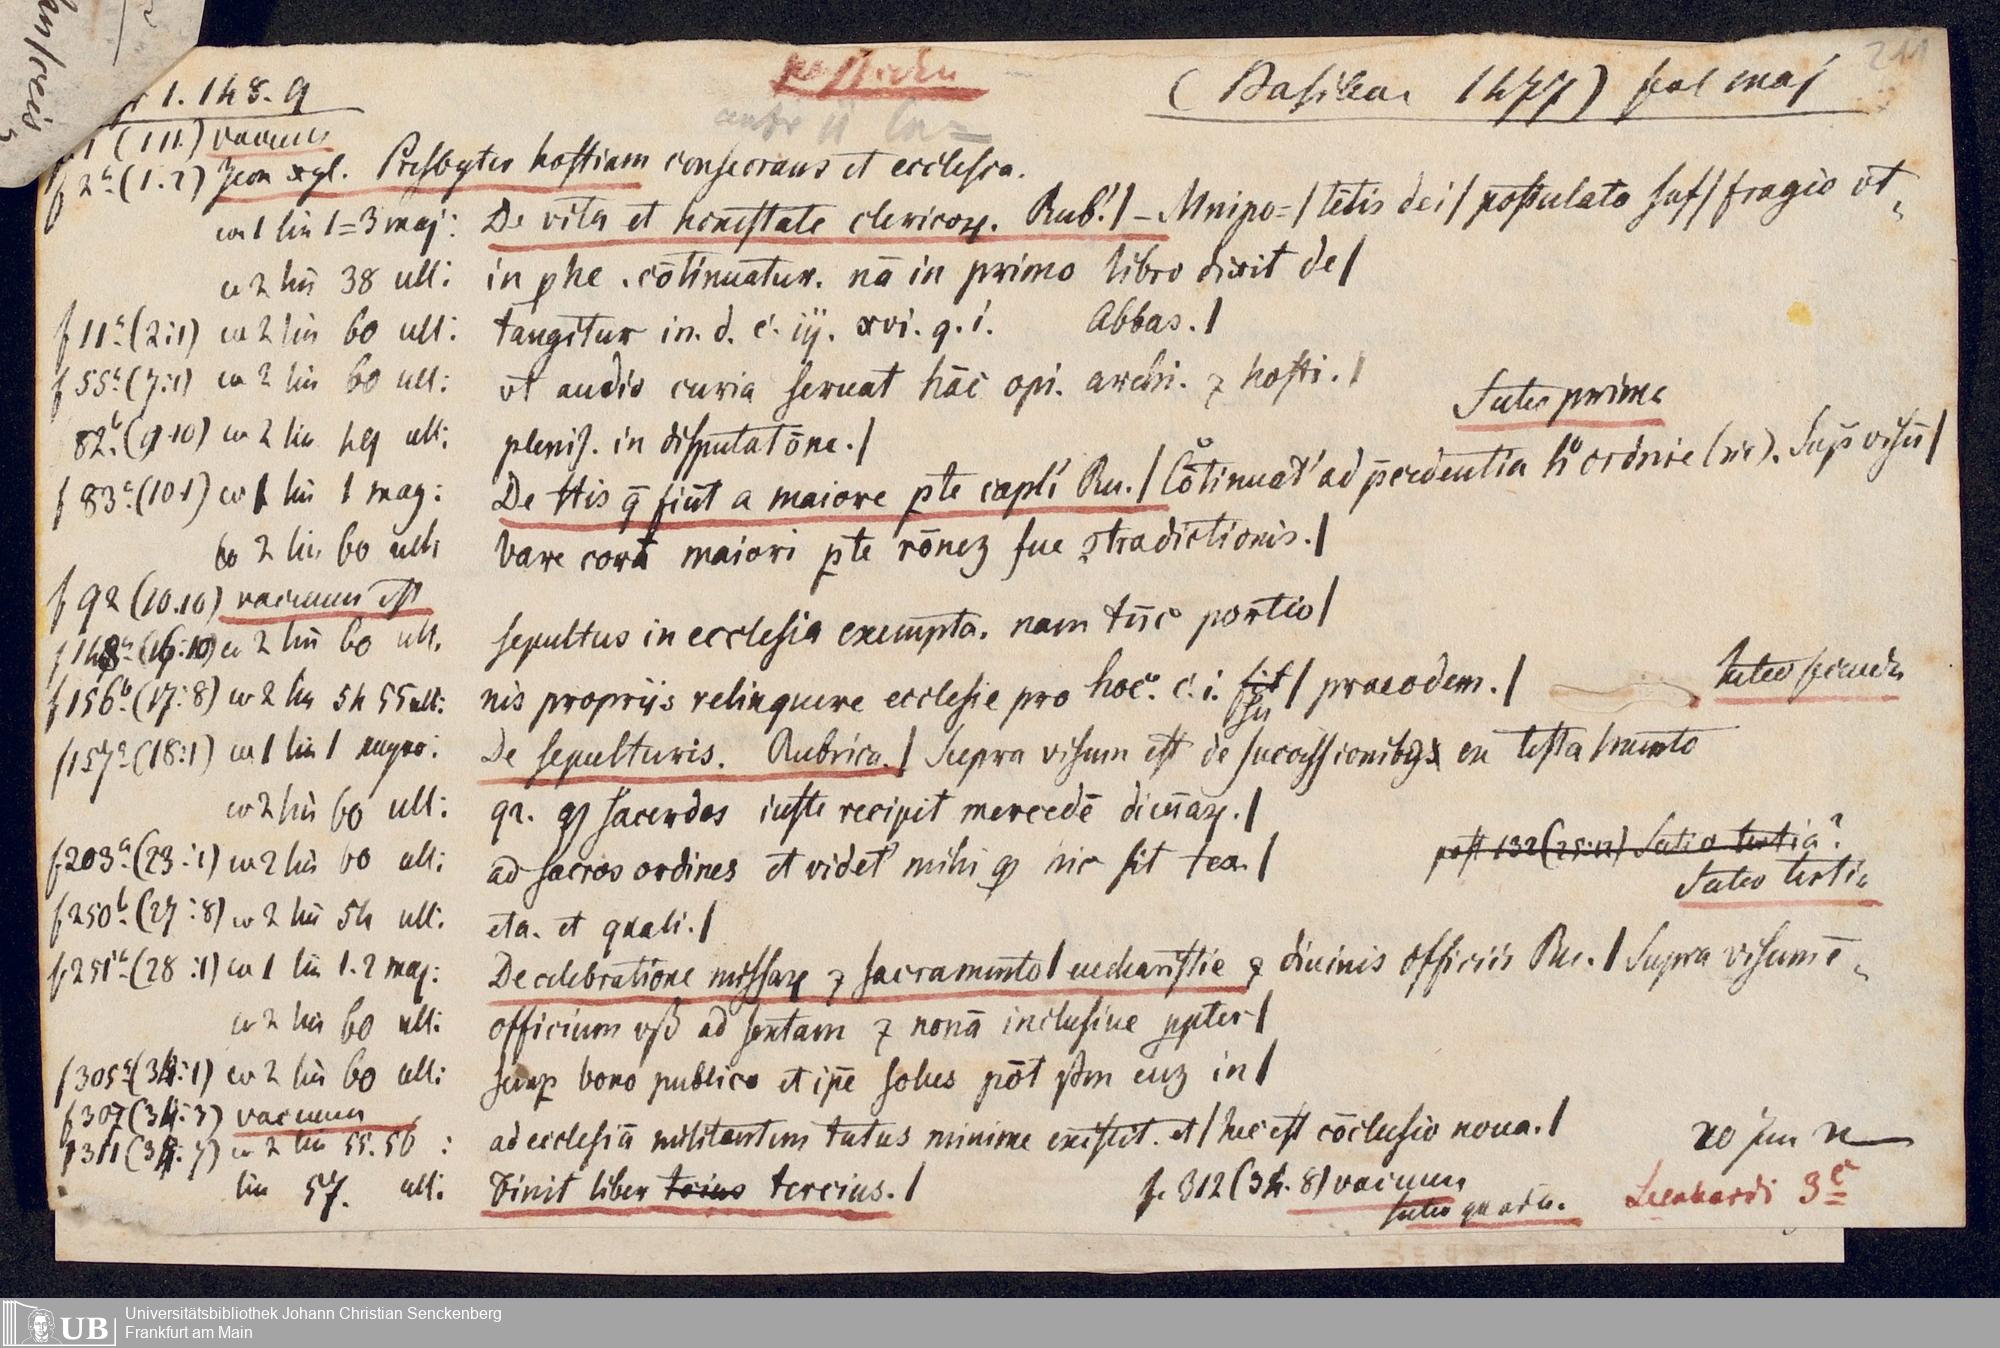 1. 148. 9
(Basileae 1477) fol maj
211
f 1 (1 1.) vacuum
f 2a (1.2) Icon xyl. Presbyter hostiam consecrans et ecclesia.
co 1 lin 1=3 maj: De vita et honestate clericoꝝ. Rub'. / – Mnipo= / tētis dei / postulato suf / fragio vt
co 2 lin 38 ult: in ꝑhe . cōtinuatur. nā in primo libro dixit de /
f 11a (2:1) co 2 lin 60 ult: tangitur in. d. c. ij. xvi. q. i. Abbas. /
f 55a (7:1) co 2 lin 60 ult: vt audio curia seruat hāc opi. archi. ⁊ hosti. /
Sectio prima
82b (9.10) co 2 lin 49 ult: pleni. in disputatōne. /
f 83a (10.1) co 1 lin 1 maj: De Htis q̄ fiūt a maiore ꝑte capl'i Ru. / Cōtinuat' ad p̄cedentia hº ordnie (sic). Sup̄ visū /
co 2 lin 60 ult: vare corā maiori ꝑte rōnez sue ꝯtradictionis. /
f 92 (10.10) vacuum est
f 148a (16:10) co 2 lin 60 ult. sepultus in ecclesia exempta. nam tūc portio /
f 156b (17:8) co 2 lin 54 55 ult: nis propriis relinquere ecclesie pro hoc. c. i. / praeodem. /
Sectio secunda
f 157a (18:1) co 1 lin 1 majore: De sepulturis. Rubrica. / Supra visum est de successionibus ex testa / mento
co 2 lin 60 ult: qr. ꝙ sacerdos iuste recipit mercedē diuīaꝝ. /
f 203a (23:1) co 2 lin 60 ult: ad sacros ordines et videt' mihi ꝙ hic sit tex. /
post 132 (25:12) Sectio tertia?
Sectio tertia
f 250b (27:8) co 2 lin 54 ult: eta. et quali. /
f 251a (28:1) co 1 lin 1.2 maj: De celebratione missaꝝ ⁊ sacramento / eucharistie ⁊ diuinis officiis Ru. / Supra visum ē
co 2 lin 60 ult: officium vsꝗ ad sextam ⁊ nonā inclusiue ꝓpter /
f 305a (34:1) co 2 lin 60 ult: bono publico et ip̄e solus pōt in /
f 307 (34:3) vacuum
f 311 (34:7) co 2 lin 55.56 : ad ecclesiā militantem tutus minime existit. et / hec est cōclusio noua. /
lin 57. ult: Finit liber tercius. /
f. 312 (34. 8) vacuum
Sectio quarta.
Leonhardi 3c
Universitätsbibliothek Johann Christian Senckenberg
UB
Frankfurt am Main